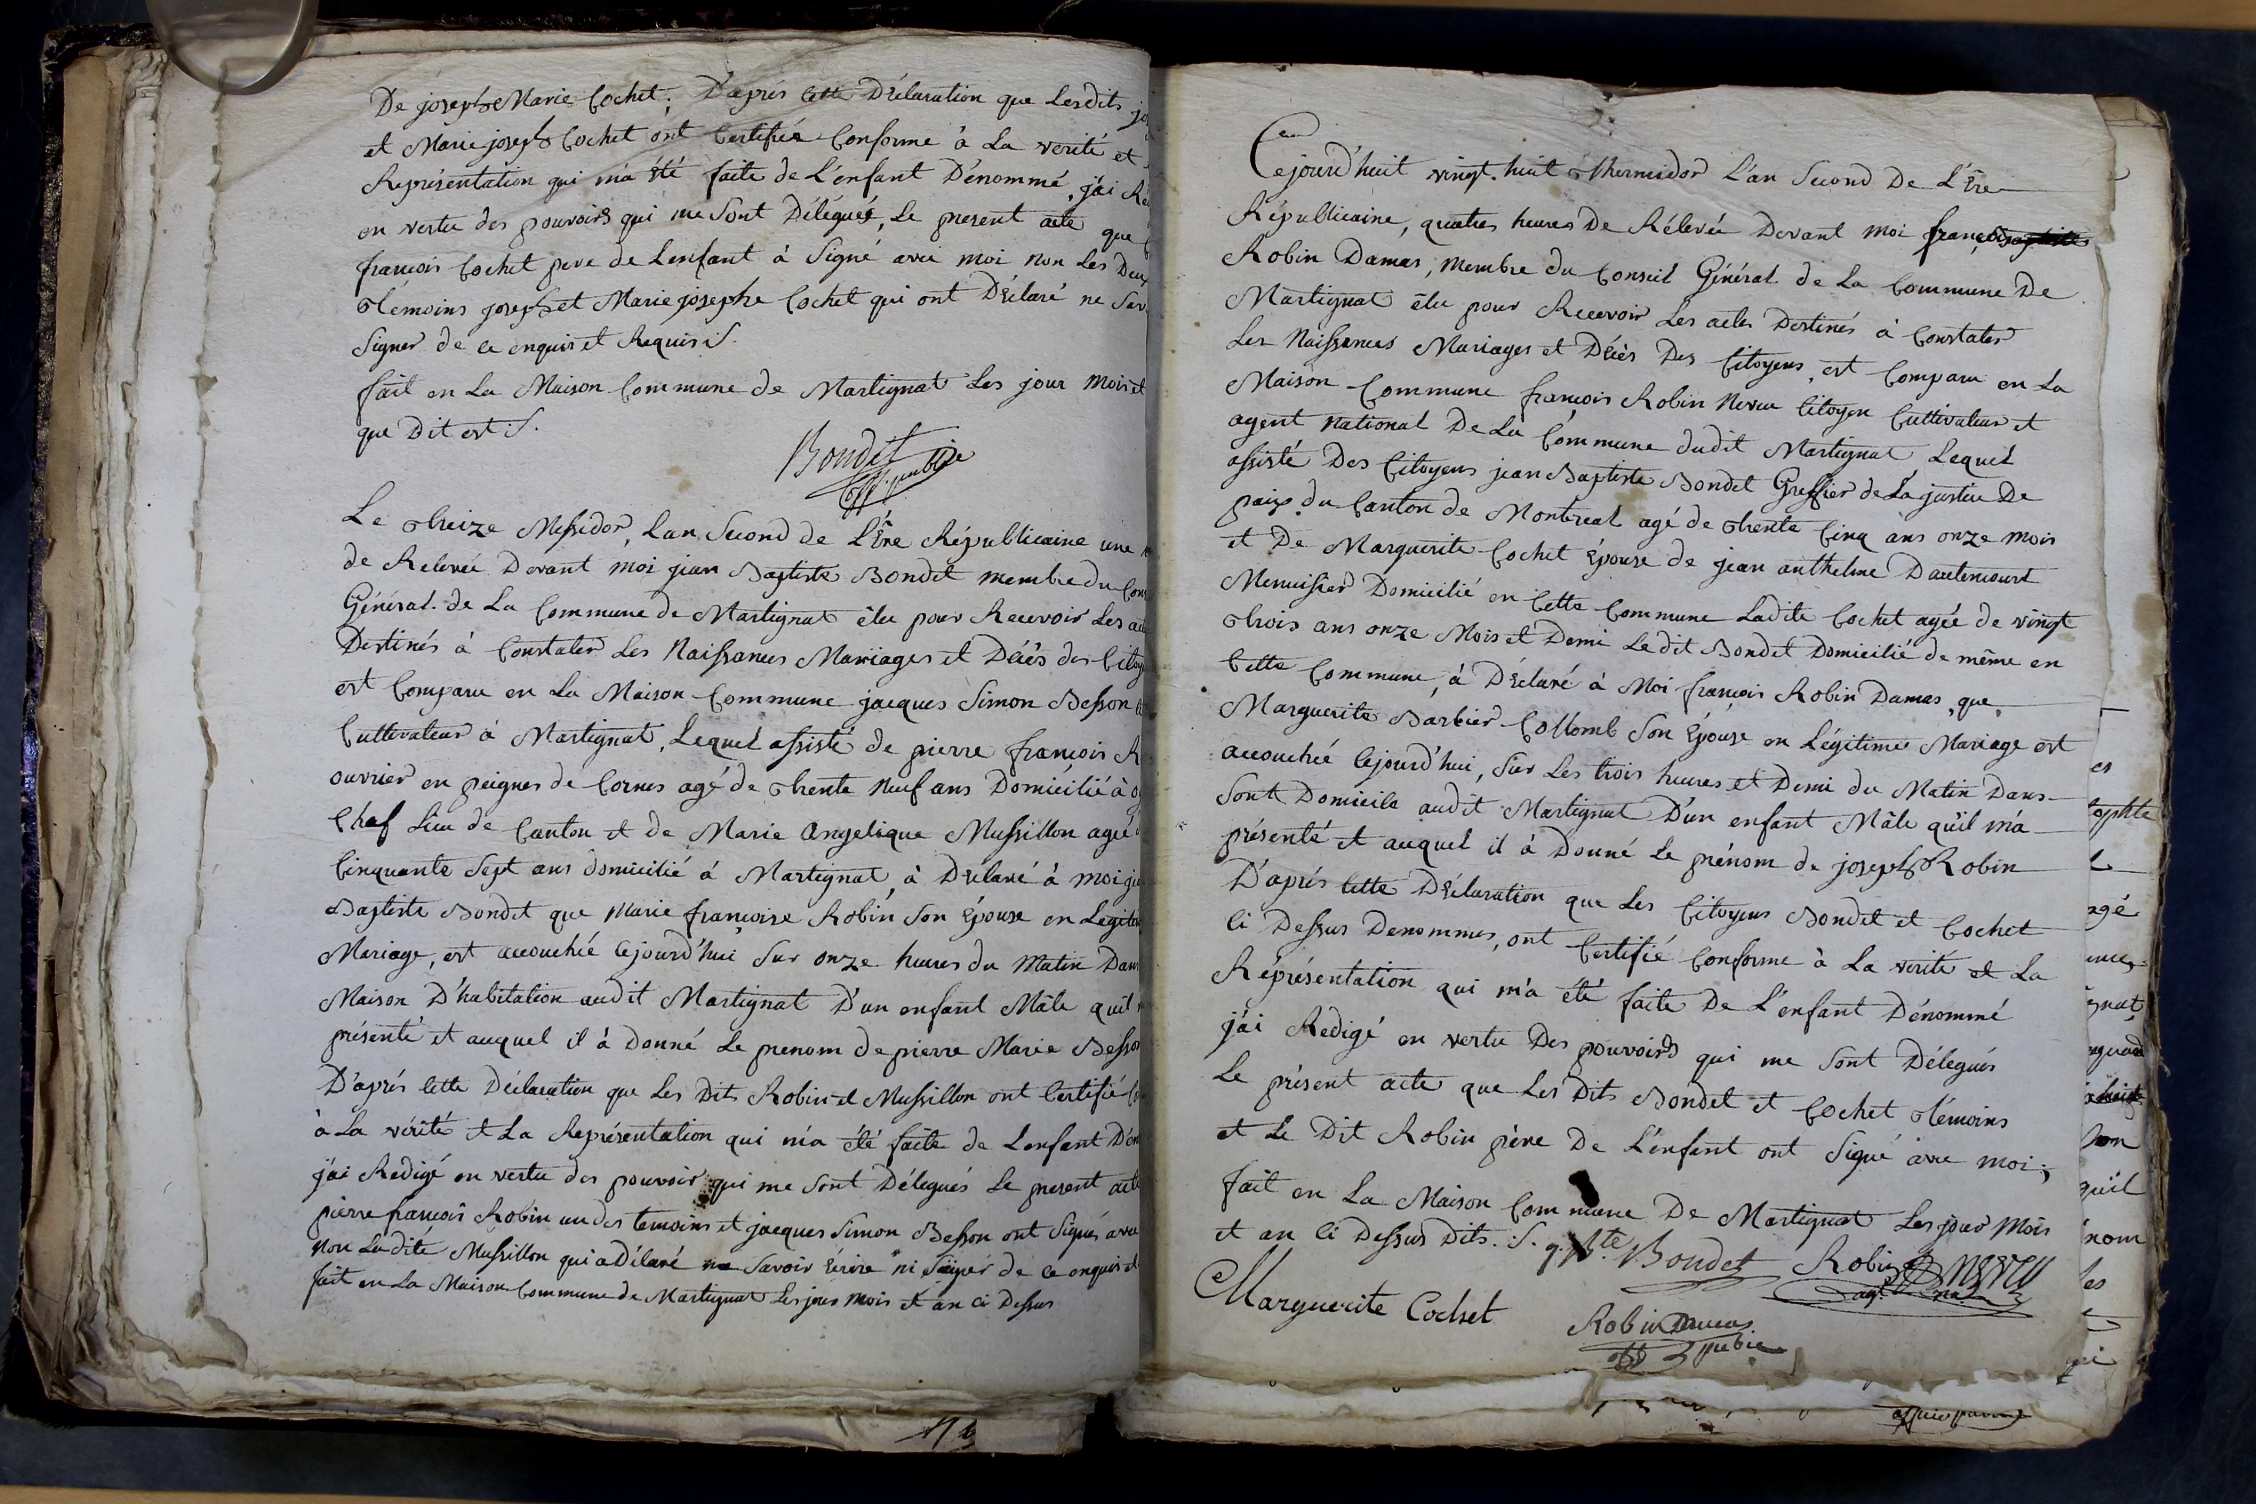 De joseph Marie Cochet; D'aprés Cette Déclaration que Lesdits jo
et Marie joseph Cochet ont Certifiée Conforme à La verité et
Représentation qui m'a été faite de L'enfant Dénommé, j'ai Ré
en vertu des pouvoirs qui me Sont Délégués, Le present acte que
françois Cochet pere de Lenfant à Signé avec moi non Les Deux
témoins joseph et Marie josephe Cochet qui ont Déclaré ne Sav
Signer de ce enquis et Requis ./.
fait en La Maison Commune de Martignat Les jour Mois et
que Dit est ./.
Bondet
off. publice
Le treize Messidor, Lan Second de L'Ere Républicaine une
de Relevée Devant moi jean Baptiste Bondet membre du Cons
Général de La Commune de Martignat élu pour Recevoir Les act
Destinés à Constater Les Naissances Mariages et Décés des Citoy
est Comparu en La Maison Commune jacques Simon Besson
Cultivateur à Martignat, Lequel assisté de pierre françois R
ouvrier en peignes de Cornes agé de trente Neuf ans Domicilié à o
Chef Lieu de Canton et de Marie Angelique Mussillon agée
Cinquante Sept ans domicilié à Martignat, à Déclaré à moi je
Baptiste Bondet que Marie françoise Robin Son Epouse en Légitim
Mariage, est accouchée Cejourd'hui Sur onze heures du Matin Dans
Maison D'habitation audit Martignat D'un enfant Mâle quil
présenté et auquel il à Donné Le prenom de pierre Marie Besson
D'aprés Cette Déclaration que Les Dits Robin et Mussillon ont Certifié
à La vérité et La Représentation qui m'a été faite de Lenfant Dén
j'ai Redigé en vertu des pouvoir qui me Sont Délegués Le present acte
pierre françois Robin un des temoins et jacques Simon Besson ont Signés avec
Non Ladite Mussillon qui a Déclaré ne Savoir Ecrire ni Signer de ce enquis et
fait en La Maison Commune de Martignat Les jour Mois et an ci Dessus
Cejourd'huit vingt-huit thermidor L'an Second De L'Ere
Républicaine, quatres heures De Rélevée Devant moi françois
Robin Damas, membre du Conseil Général de La Commune De
Martignat élu pour Recevoir Les actes Destinés à Constater
Les Naissances Mariages et Décès Des Citoyens, est Comparu en La
Maison Commune françois Robin Neveu Citoyen Cultivateur et
agent National De La Commune dudit Martignat Lequel
assisté Des Citoyens jean Baptiste Bondet Greffier de La justice De
paix du Canton de Montreal agé de trente Cinq ans onze mois
et De Marguerite Cochet Épouse de jean anthelme Dautencourt
Menuisier Domicilié en Cette Commune Ladite Cochet agée de vingt
trois ans onze Mois et Demi Le dit Bondet Domicilié de même en
Cette Commune, à Déclaré à Moi françois Robin Damas, que
Marguerite Barbier Collomb Son Epouse en Légitime Mariage est
accouchée Cejourd'hui, Sur Les trois heures et Demi du Matin Dans
Sont Domicile audit Martignat D'un enfant Mâle qu'il m'a
présenté et auquel il à Donné Le prénom de joseph Robin
D'aprés Cette Déclaration que Les Citoyens Bondet et Cochet
Ci Dessus Denommés, ont Certifié Conforme à La verité et La
Représentation qui m'a été faite De L'enfant Dénommé
j'ai Redigé en vertu Des pouvoirs qui me Sont Délegués
Le présent acte que Les Dits Bondet et Cochet témoins
et Le Dit Robin père De L'enfant ont Signé avec moi;
fait en La Maison Commune De Martignat Les jour Mois
et an Ci Dessus Dits ./. j. Bte Bondet Robin Neveu
agt na
Marguerite Cochet
Robin Damas
off publice